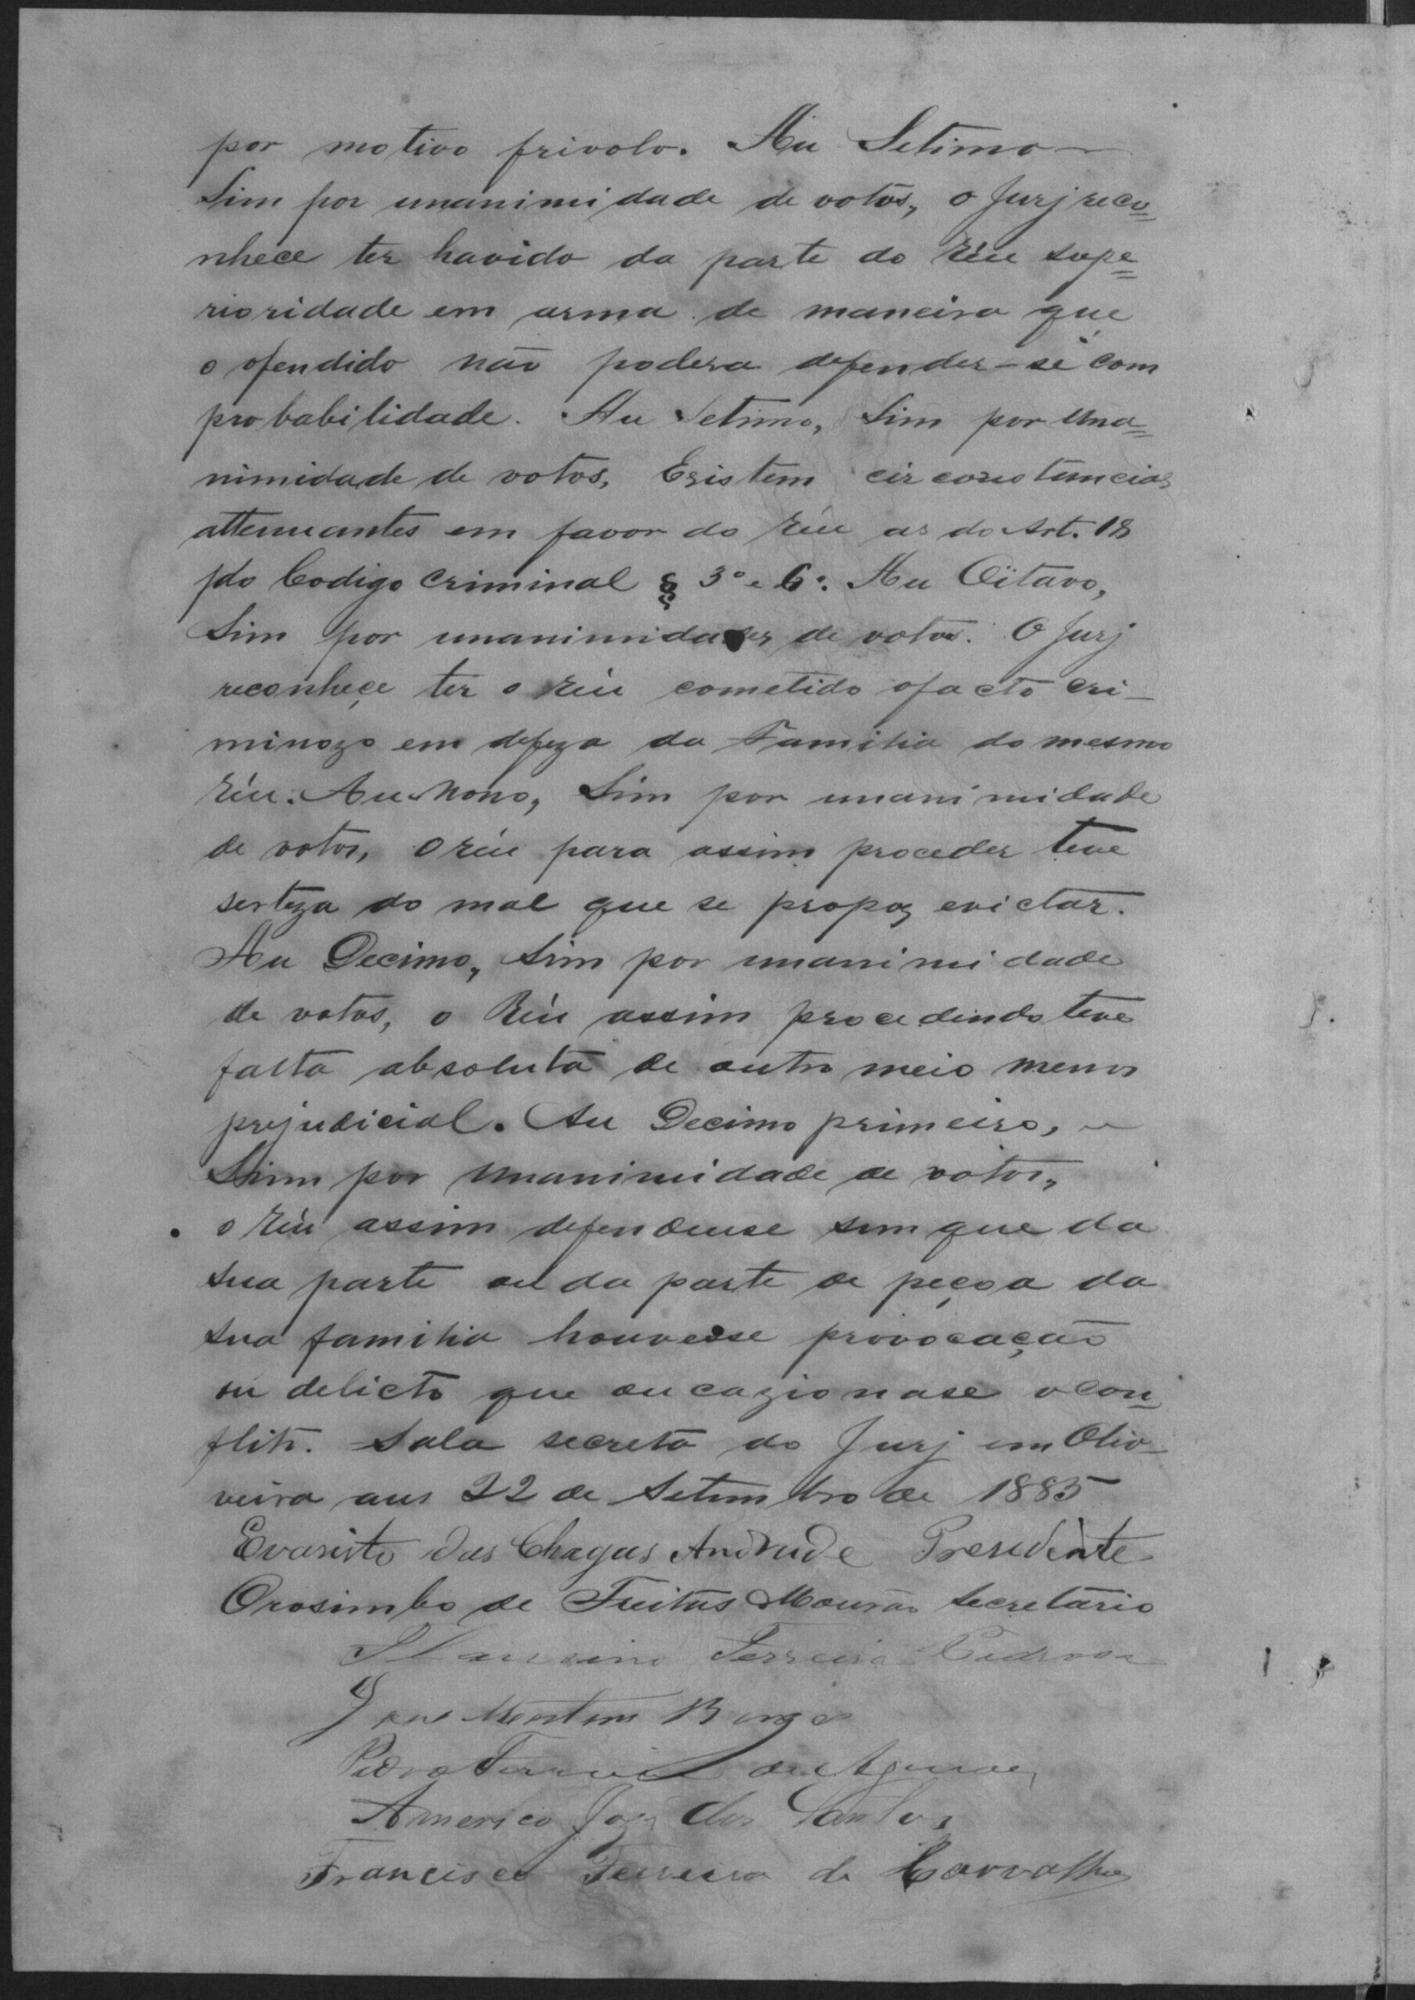 por motivo frivolo. Au Setimo —
Sim por unanimidade de votos, o Jurj reco=
nhece ter havido da parte do Réu supe=
rioridade em arma de maneira que
o ofendido não podera defender-se com
probabilidade. Au Setimo, Sim por una=
nimidade de votos, Esistem circonstancias
attenuantes em favor do Réu as do Art. 18
do Codigo Criminal § 3º e 6º. Au Oitavo,
Sim por unanimidades de votos. O Jurj
reconheçe ter o réu cometido o facto cri-
minozo em defeza da Familia do mesmo
réu. Au Nono, Sim por unanimidade
de votos, o réu para assim proceder teve
serteza do mal que se propoz evictar.
Au Decimo, Sim por unanimidade
de votos, o Réu assim procedendo teve
falta absoluta de outro meio menos
prejudicial. Au Decimo primeiro,
Sim por unanimidade de votos,
o Réu assim defendeuse sem que da
sua parte ou da parte de peçoa da
sua familia houvesse provocação
ou delicto que oucazionase o con=
flito. Sala secreta do Jurj em Oliv-
veira aus 22 de Setembro de 1885
Evaristo das Chagas Andrade Presidente
Orosimbo de Freitas Mourão Secretario
Ferreira
Borges
Pedro Ferreira de
Americo Joze dos Santos
Francisco Ferreira de Carvalho